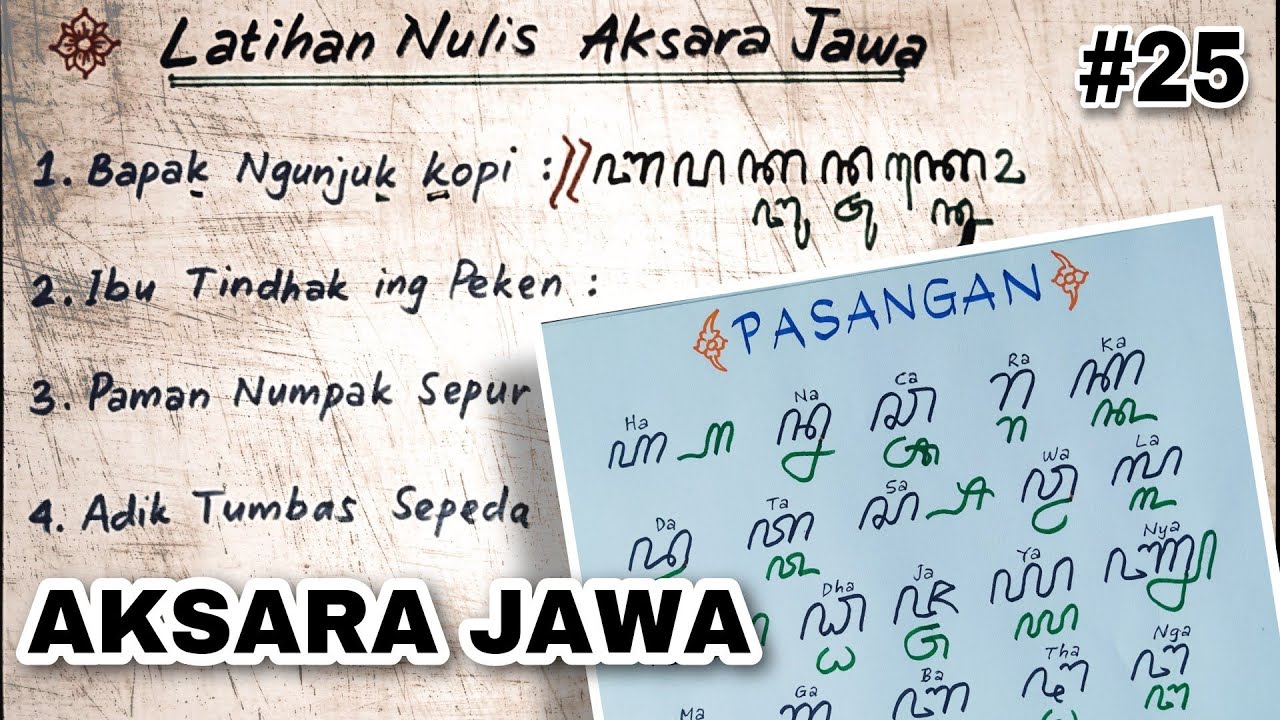 Latihan Nulis Aksara Jawa
#25
1. Bapak Ngunjuk kopi : ꧋ꦧꦥꦏ꧀ꦔꦸꦤ꧀ꦗꦸꦏ꧀ꦏꦺꦴ
2. Ibu Tindhak ing Peken :
3. Paman Numpak Sepur
4. Adik Tumbas Sepeda
AKSARA JAWA
PASANGAN
Ha Na Ca Ra Ka
ꦲ ꧀ꦲ ꦤ ꧀ꦤ ꦕ ꧀ꦕ ꦫ ꧀ꦫ ꦏ ꧀ꦏ
Da Ta Sa Wa La
ꦢ ꦠ ꧀ꦠ ꦱ ꧀ꦱ ꦮ ꧀ꦮ ꦭ ꧀ꦭ
Dha Ja Ya Nya
ꦝ ꧀ꦝ ꦗ ꧀ꦗ ꦪ ꧀ꦪ ꦚ ꧀ꦚ
Ma Ga Ba Tha Nga
ꦒ ꦧ ꦛ ꦔ ꧀ꦔ